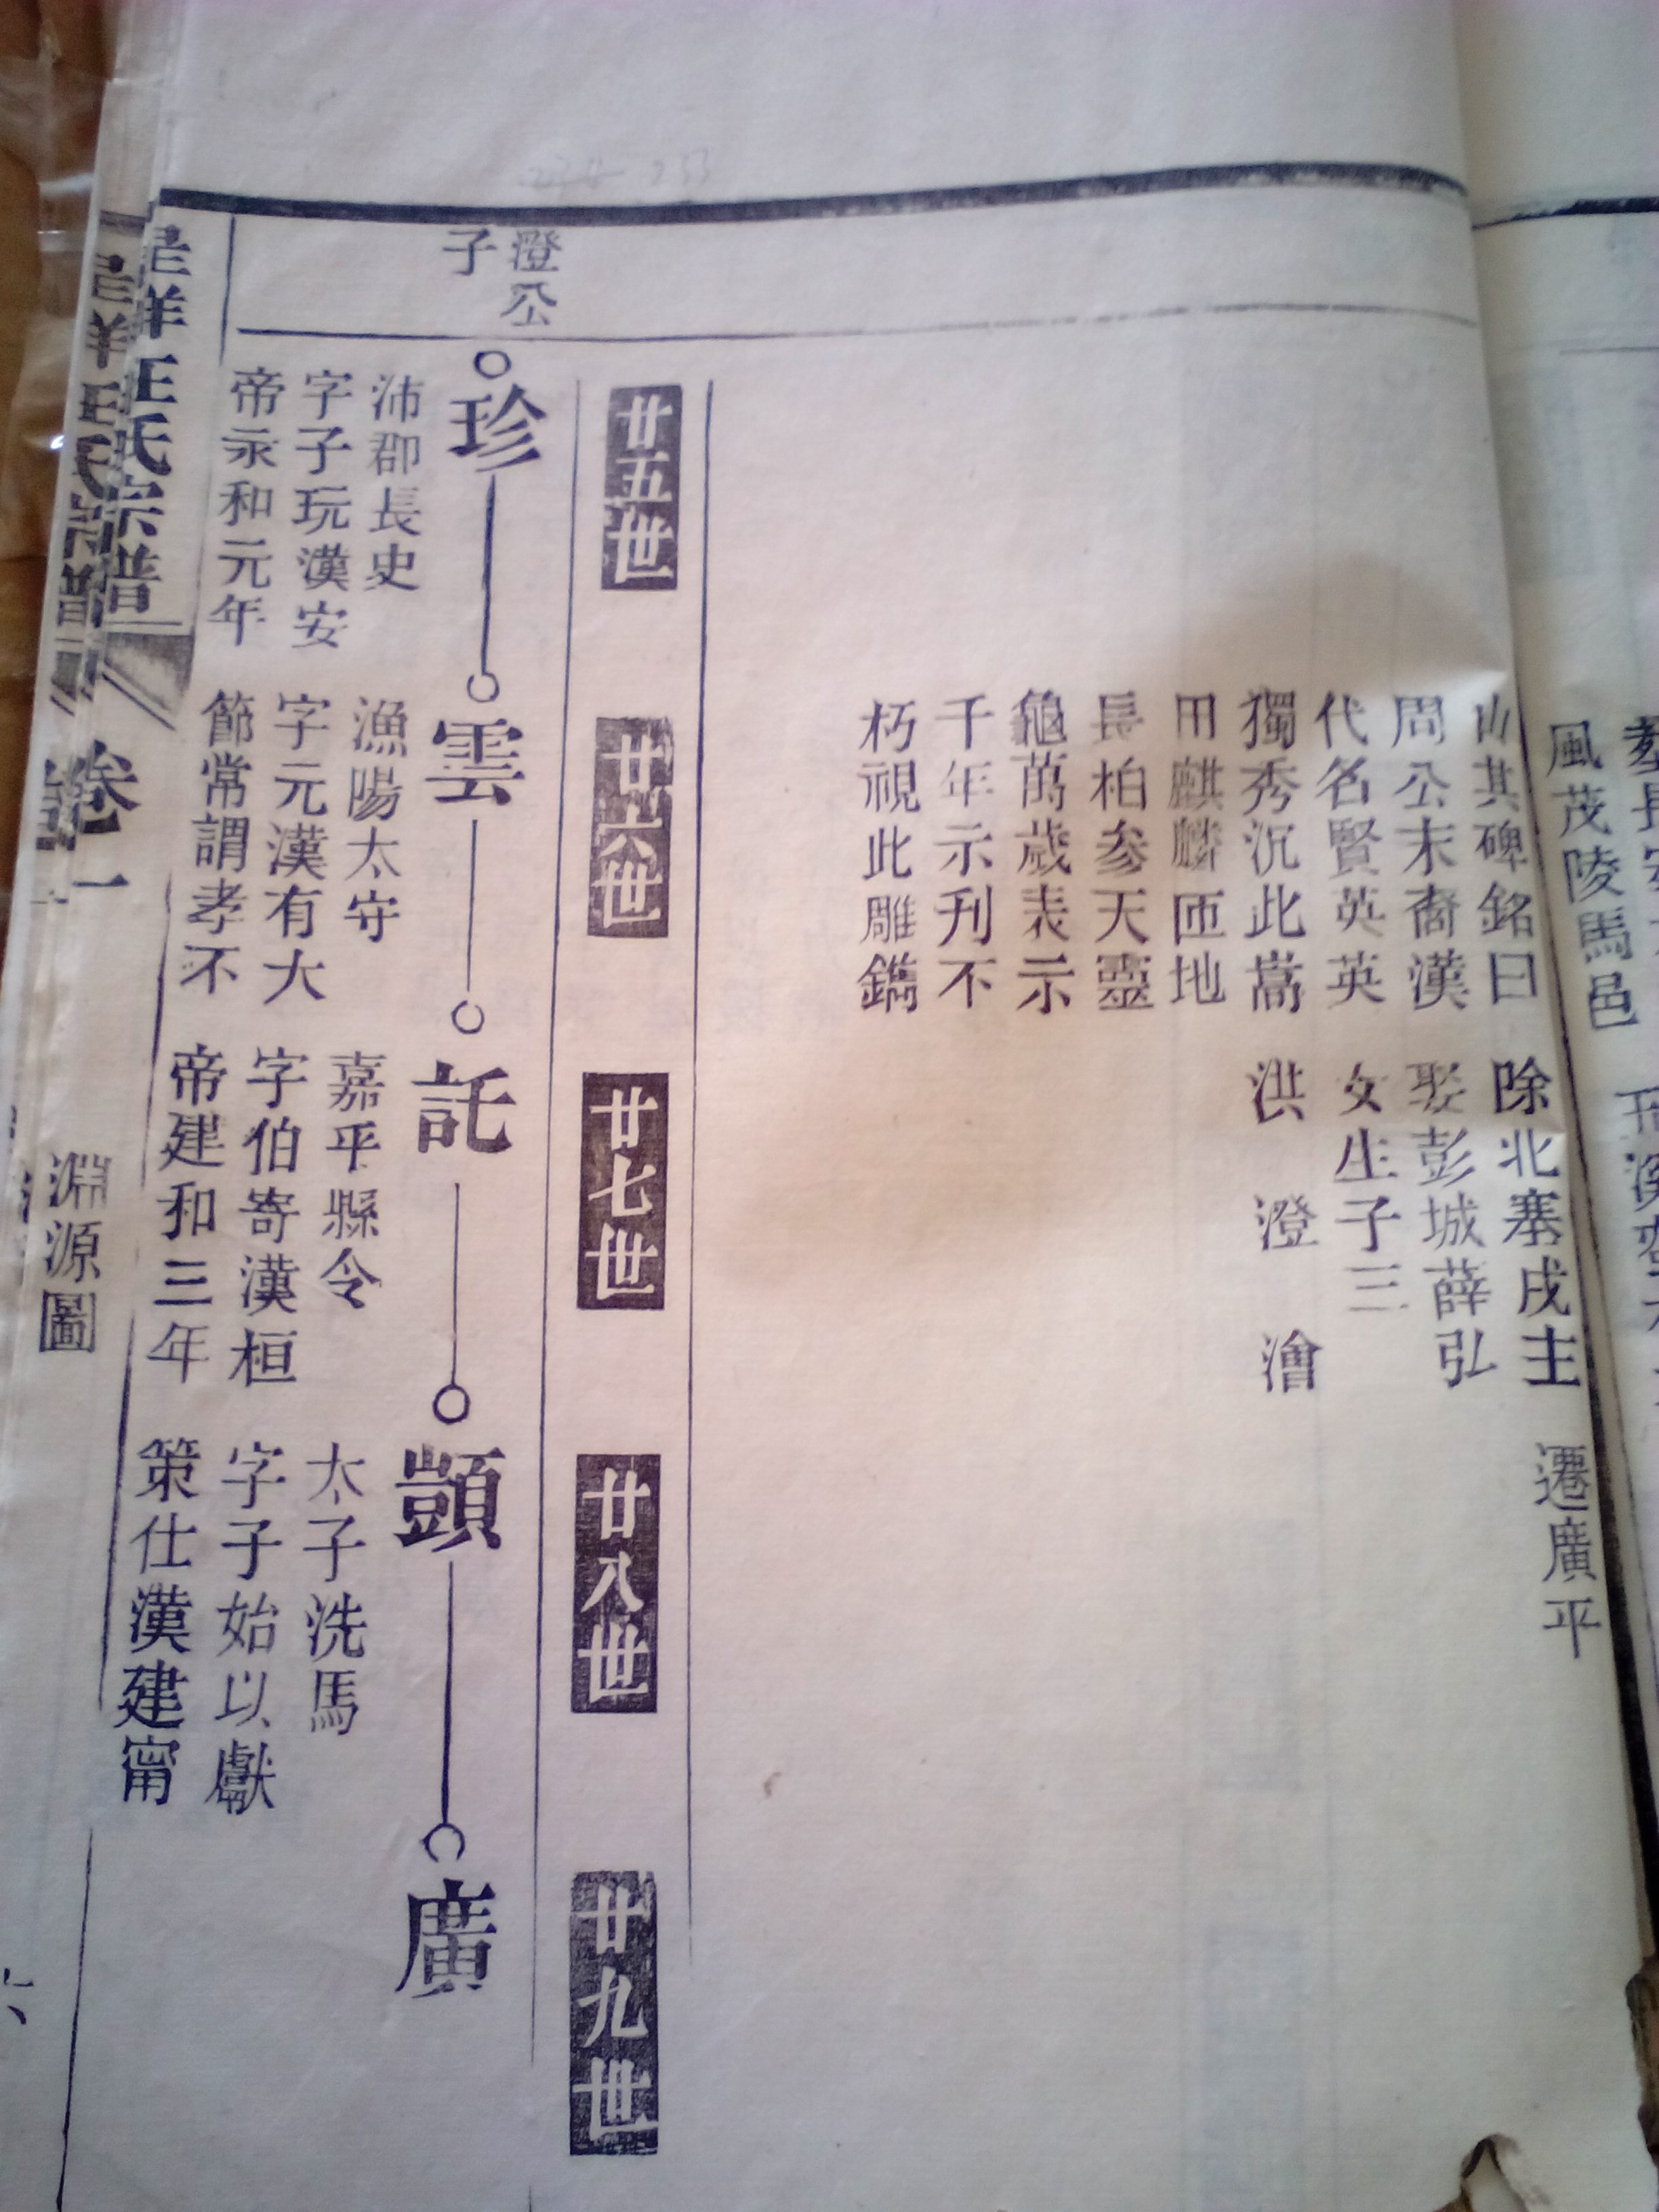 風茂陵馬邑
山其碑銘曰
周公末裔漢
代名賢英英
獨秀沉此嵩
田麒麟匝地
長柏参天靈
龜萬歲表示
千年示刋不
朽視此雕鐫
除北塞戍主
娶彭城薛弘
女生子三
洪 澄 澮
遷廣平
廿五世
廿六世
廿七世
廿八世
廿九世
澄公
子
珍
沛郡長史
字子玩漢安
帝永和元年
雲
漁陽太守
字元漢有大
節常謂孝不
託
嘉平縣令
字伯寄漢桓
帝建和三年
顗
太子洗馬
字子始以獻
策仕漢建甯
廣
羊王氏宗譜
卷一
淵源圖